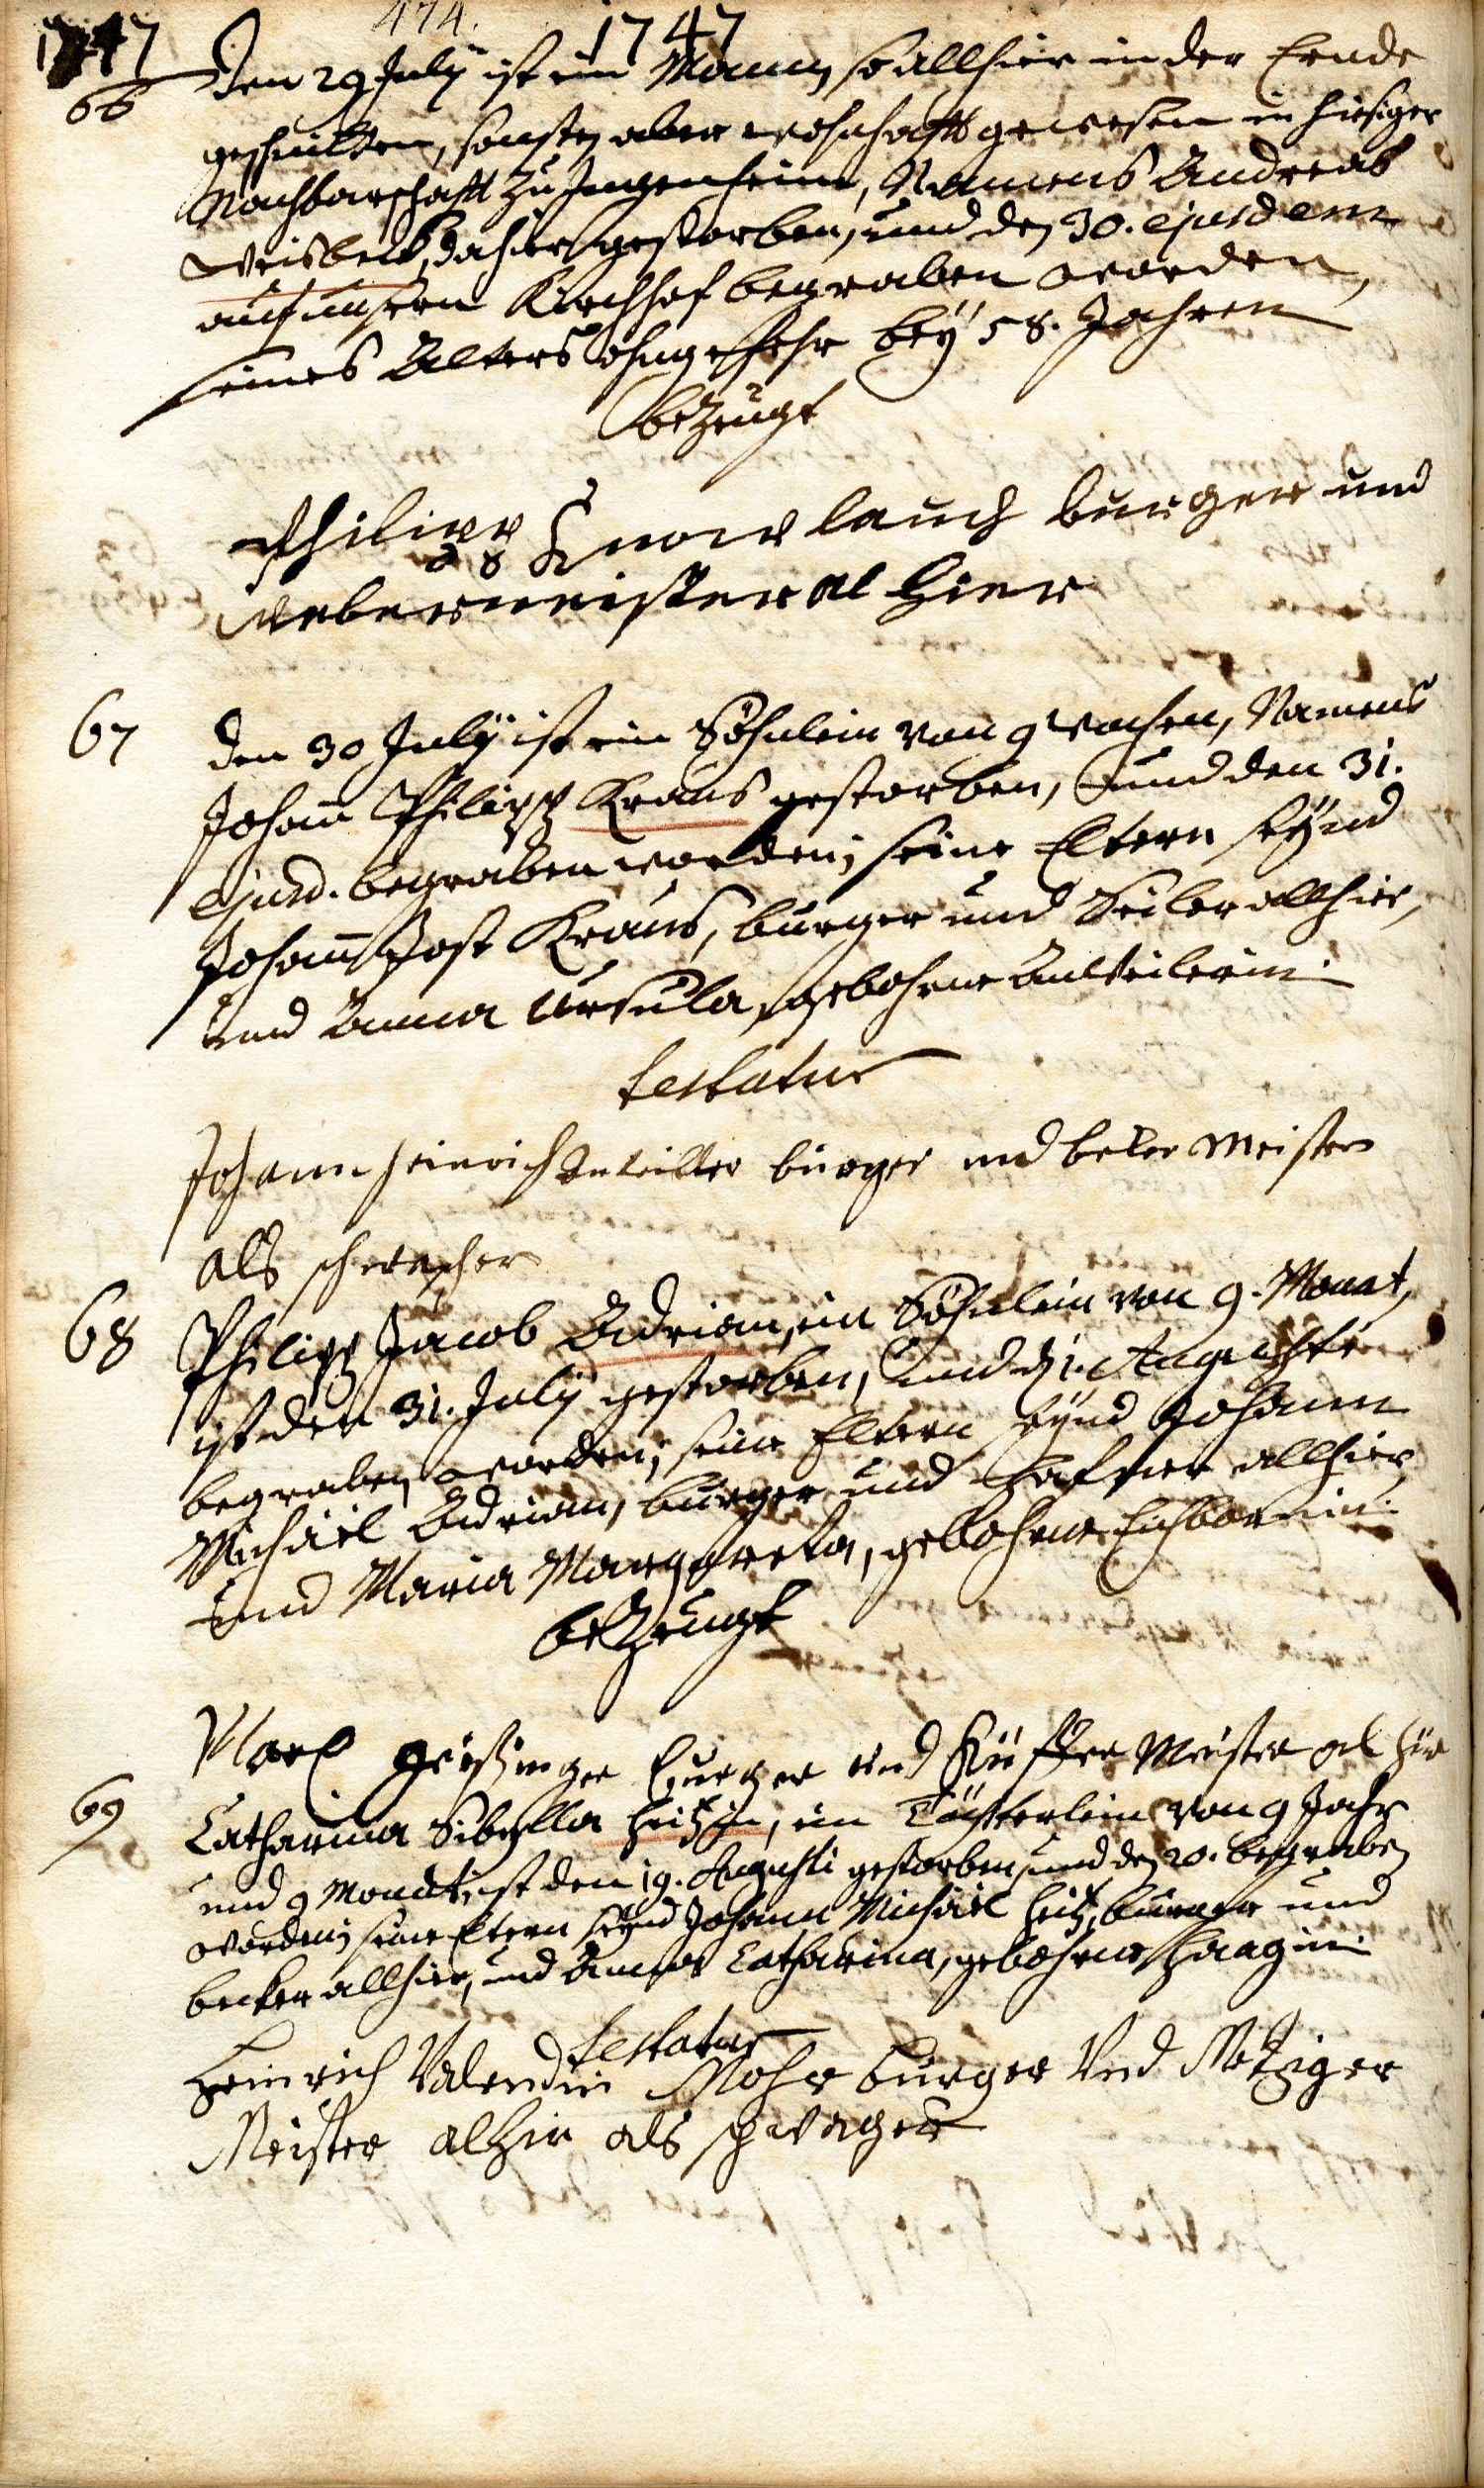 1747 474. 1747
66 Den 29 July ist ein Mann, so allhier in der Ernde
geschnitten, sonsten aber wohnhafft gewesen in hiesiger
Nachbarschafft zu Jugenheim, Namens Andreas
Weisbeck, dahier gestorben, und den 30. ejusdem
auf unsern Kirchhof begraben worden,
seines Alters ohngefehr bey 58. Jahren
bezeugt
Philipp Knowlauch burger und
Webermeister al hier
67 Den 30 July ist ein Söhnlein von 9 Wochen, Namens
Johann Philipp Kraus gestorben, und den 31.
ejusd. begraben worden; seine Eltern seynd
Johann Jost Kraus, burger und Seiler allhier,
und Anna Ursula, gebohrne
testatur
Johann Heinrich burger und Meister
als schwacher
68 Philipp Jacob Adrian, ein Söhnlein von 9. Monat,
ist den 31. July gestorben, und d. 1. Augusti
begraben worden; seine Eltern seynd Johann
Michäel Adrian, burger und Hafner allhier,
und Maria Margareta, gebohrne Eichbornin.
bezeugt
Marx Geisinger burger und Küffer Meister al hir
69 Catharina Sibylla Heitzin, ein Töchterlein von 9 Jahr
und 9 Monat, ist den 19. Augusti gestorben, und den 20. begraben
worden; seine Eltern seynd Johann Michäel Heitz, burger und
becker allhier, und Anna Catharina, gebohrne Haagin.
testatur
Heinrich Valendin Mohr burger Und Metziger
Meister alhir als schwager